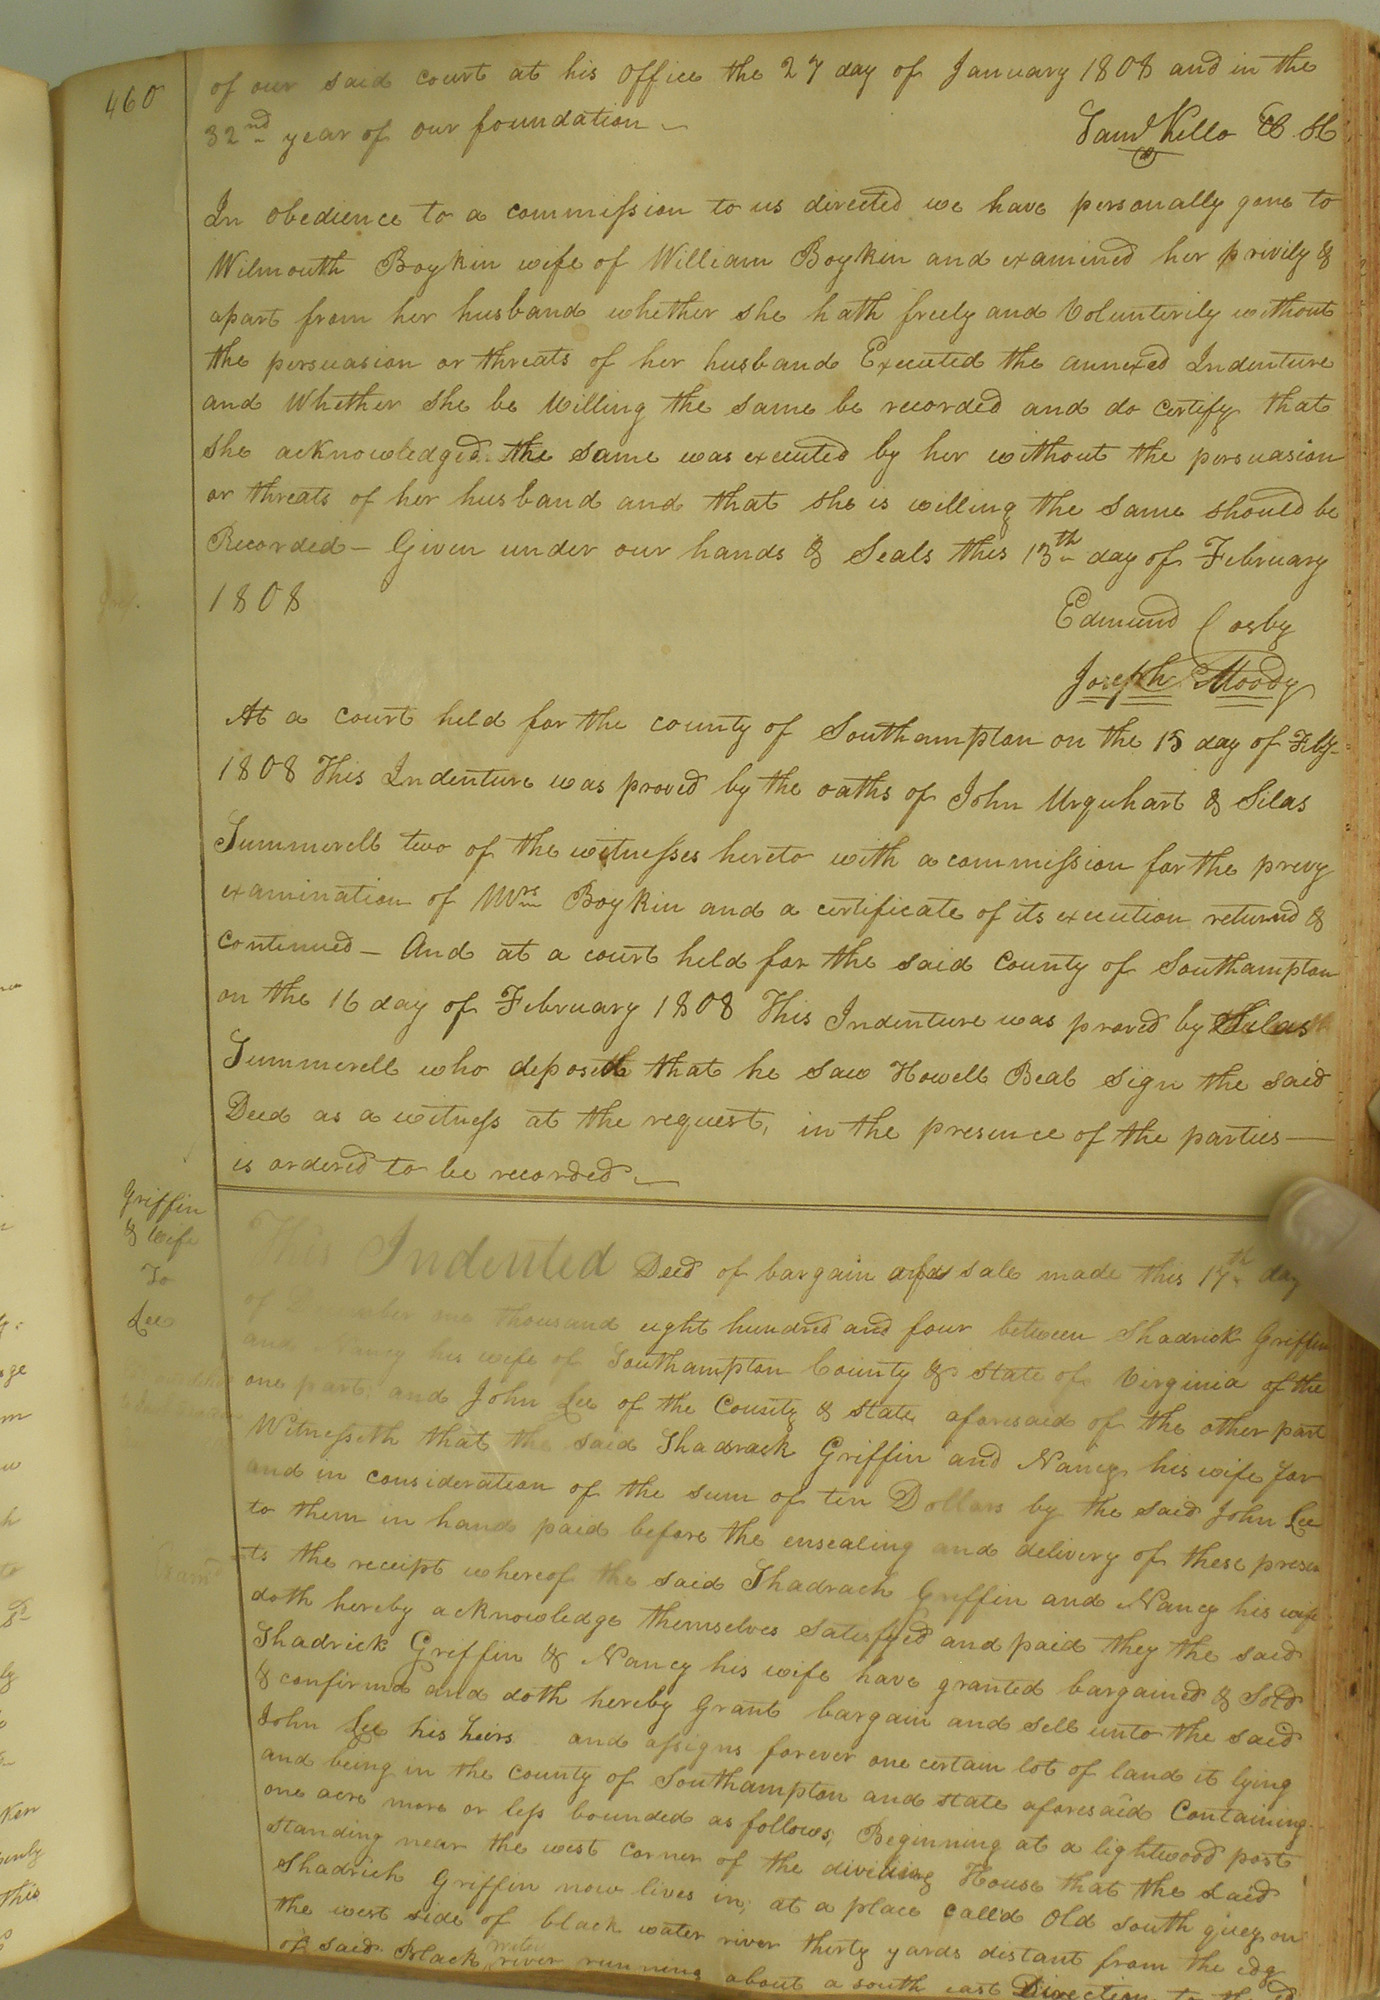 460
of our said court at his office the 27 day of January 1808 and in the
32nd year of our foundation
Saml Kello
In obedience to a commission to us directed we have personally gone to
Wilmouth Boykin wife of William Boykin and examined her privily &
apart from her husband whether she hath freely and Volunterily without
the persuasion or threats of her husband Executed the annexed Indenture
and Whether she be Willing the same be recorded and do certify that
she acknowledged the same was executed by her without the persuasion
or threats of her husband and that she is willing the same should be
Recorded — Given under our hands & Seals this 13th day of February
1808
Edmund Cosby
Joseph Moody
At a court held for the county of Southampton on the 15 day of Feby
1808 This Indenture was proved by the oaths of John Urquhart & Silas
Summerell two of the witnesses hereto with a commission for the prevy
examination of Mrs Boykin and a certificate of its execution returnd &
Contenued — And at a court held for the said County of Southampton
on the 16 day of February 1808 This Indenture was proved by Silas
Summerell who deposeth that he saw Howell Beal sign the said
Deed as a witness at the request, in the presence of the parties —
is ordered to be recorded —
Griffin
& Wife
To
Lee
This Indented Deed of bargain and sale made this 17th day
of December one thousand eight hundred and four between Shadrick Griffin
and Nancy his wife of Southampton County & State of Virginia of the
one part and John Lee of the County & state aforesaid of the other part
Witnesseth that the said Shadrack Griffin and Nancy his wife for
and in consideration of the sum of ten Dollars by the said John Lee
to them in hand paid before the ensealing and delivery of these presen
ts the receipt whereof the said Shadrach Griffin and Nancy his wife
doth hereby acknowledge themselves satisfyed and paid they the said
Shadrick Griffin & Nancy his wife have granted bargained & sold
& confirmd and doth hereby grant bargain and sell unto the said
John Lee his heirs and assigns forever one certain lot of land it lying
and being in the county of Southampton and state aforesaid Containing
one acre more or less bounded as follows, Beginning at a lightwood post
standing near the west corner of the House that the said
Shadrich Griffin now lives in, at a place calld Old south quey on
the west side of black water river thirty yards distant from the edg
of said Black water river running about a south east Direction to the